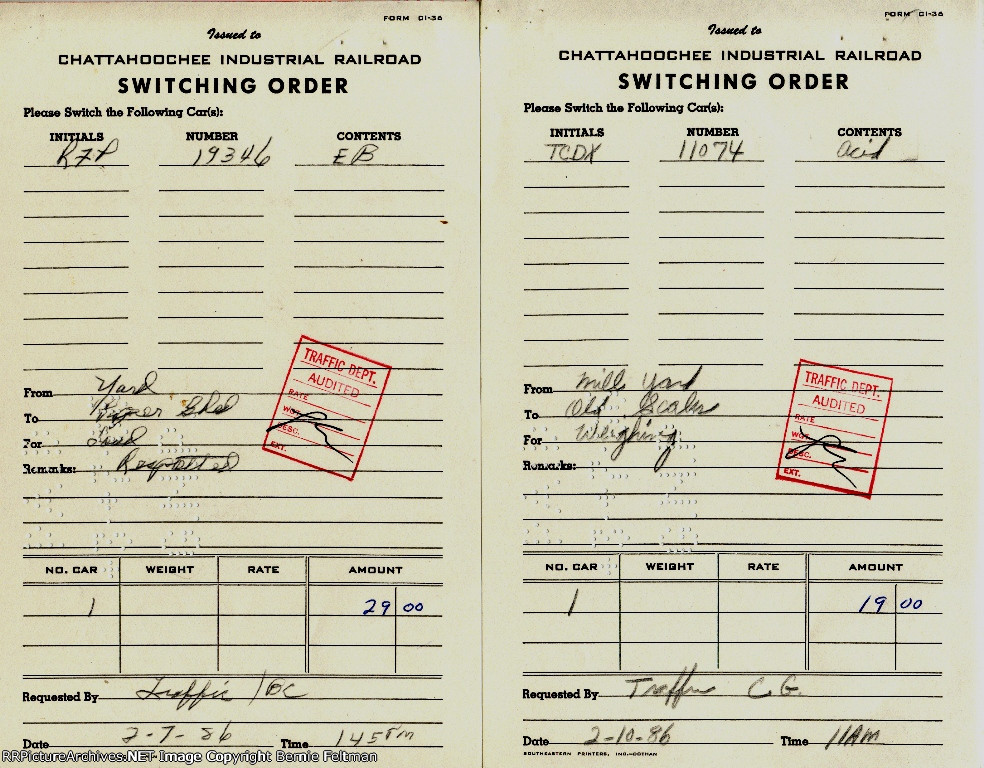 FORM CI-36
Issued to
CHATTAHOOCHEE INDUSTRIAL RAILROAD
SWITCHING ORDER
Please Switch the Following Car(s):
INITIALS NUMBER CONTENTS
RFP 19346 EB
TRAFFIC DEPT.
AUDITED
RATE
WGT.
DESC.
EXT.
From Yard
To Paper Shed
For Load
Remarks: Respotted
NO. CAR WEIGHT RATE AMOUNT
1 29 00
Requested By Traffic / BC
Date 2-7-86 Time 145 PM
FORM CI-36
Issued to
CHATTAHOOCHEE INDUSTRIAL RAILROAD
SWITCHING ORDER
Please Switch the Following Car(s):
INITIALS NUMBER CONTENTS
TCDX 11074 acid
TRAFFIC DEPT.
AUDITED
RATE
WGT.
DESC.
EXT.
From Mill Yard
To Old Scales
For Weighing
Remarks:
NO. CAR WEIGHT RATE AMOUNT
1 19 00
Requested By Traffic C.G.
Date 2-10-86 Time 11AM
SOUTHEASTERN PRINTERS, INC.—DOTHAN
RRPictureArchives.NET Image Copyright Bernie Feltman